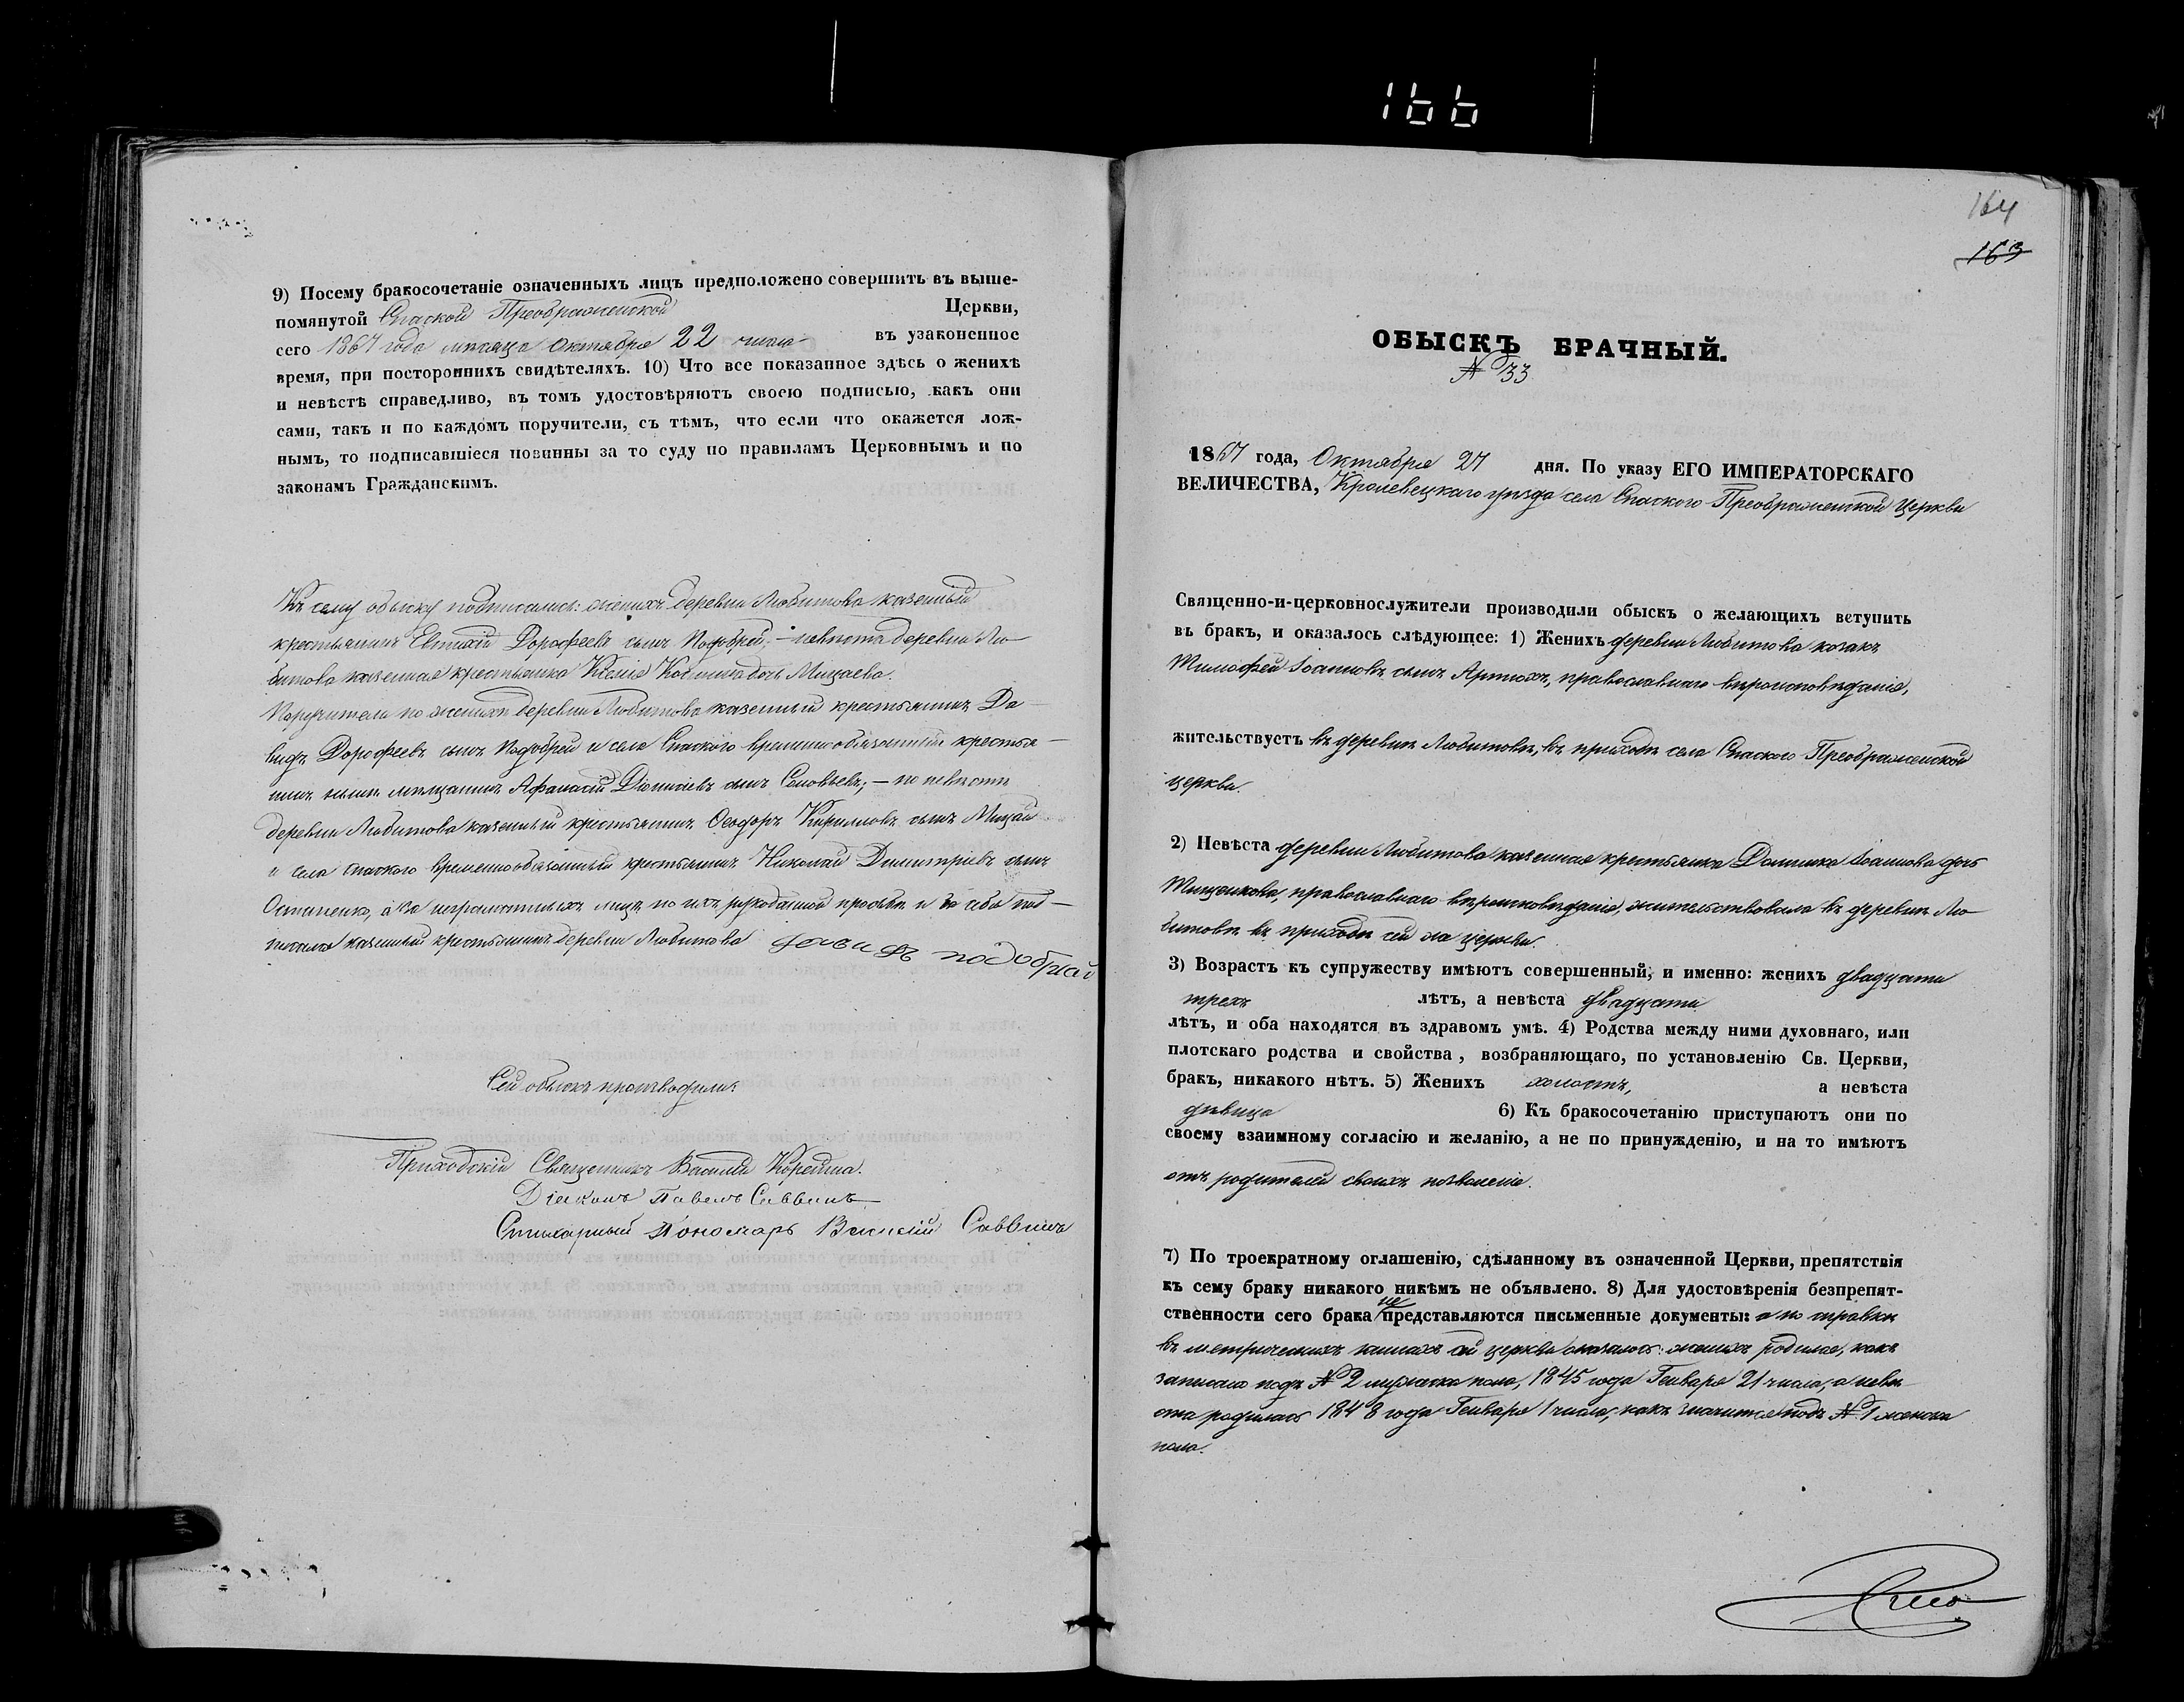 166
9) Посему бракосочетаніе означенныхъ лицъ предположено совершить въ выше-
помянутой Спаской Преображенской Церкви,
сего 1867 года мѣсяца Октября 22 числа въ узаконенное
время, при постороннихъ свидѣтеляхъ. 10) Что все показанное здѣсь о женихѣ
и невѣстѣ справедливо, въ томъ удостовѣряютъ своею подписью, какъ они
сами, такъ и по каждомъ поручители, съ тѣмъ, что если что окажется лож-
нымъ, то подписавшіеся повинны за то суду по правиламъ Церковнымъ и по
законамъ Гражданскимъ.
Къ сему обыску подписались: женихъ деревни Любитова казенный
крестьянинъ Евтихій Дорофеевъ сынъ Подобрей; — невѣста деревни Лю-
битова казенная крестьянка Ксенія дочь Мицаева.
Поручители по женихѣ деревни Любитова казенный крестьянинъ Да-
видъ Дорофеевъ сынъ Подобрей и села Спаского временнообязанный крестья-
нинъ мѣщанинъ Афанасій Діонисіевъ сынъ Соловьевъ; — по невѣстѣ
деревни Любитова казенный крестьянинъ Ѳеодоръ Кириловъ сынъ Мицай
и села Спаского временнообязанный крестьянинъ Николай Димитріевъ сынъ
Остапенко, а за неграмотныхъ лицъ по ихъ рукоданной прозьбѣ и за себя под-
писался казенный крестьянинъ деревни Любитова Давидъ подобрий
Сей обыскъ производили:
Приходскій Священникъ Василій
Діаконъ Павелъ Саввинъ
Стихарный Пономарь Василій Саввинъ
164
163
ОБЫСКЪ БРАЧНЫЙ.
№ 33
1867 года, Октября 27 дня. По указу ЕГО ИМПЕРАТОРСКАГО
ВЕЛИЧЕСТВА, Кролевецкаго уѣзда села Спаского Преображенской Церкви
Священно-и-церковнослужители производили обыскъ о желающихъ вступить
въ бракъ, и оказалось слѣдующее: 1) Женихъ деревни Любитова козакъ
Тимофей Іоанновъ сынъ Артюхъ, православнаго вѣроисповѣданія,
жительствуетъ въ деревнѣ Любитовѣ, въ приходѣ села Спаского Преображенской
церкви.
2) Невѣста деревни Любитова казенная крестьянка Домника Іоаннова дочь
Тищенкова, православнаго вѣроисповѣданія, жительствовала въ деревнѣ Лю-
битовѣ въ приходѣ сей же церкви.
3) Возрастъ къ супружеству имѣютъ совершенный, и именно: женихъ двадцати
трехъ лѣтъ, а невѣста двадцати
лѣтъ, и оба находятся въ здравомъ умѣ. 4) Родства между ними духовнаго, или
плотскаго родства и свойства, возбраняющаго, по установленію Св. Церкви,
бракъ, никакого нѣтъ. 5) Женихъ холостъ, а невѣста
дѣвица 6) Къ бракосочетанію приступаютъ они по
своему взаимному согласію и желанію, а не по принужденію, и на то имѣютъ
отъ родителей своихъ позволеніе.
7) По троекратному оглашенію, сдѣланному въ означенной Церкви, препятствія
къ сему браку никакого никѣмъ не объявлено. 8) Для удостовѣренія безпрепят-
ственности сего брака не представляются письменные документы: а по справкѣ
въ метрическихъ книгахъ сей церкви оказалось: женихъ родился, какъ
записано подъ № 2 мужеска пола, 1845 года Генваря 21 числа, а невѣ-
ста родилась 1848 года Генваря 1 числа, какъ значится подъ № 1 женска
пола.